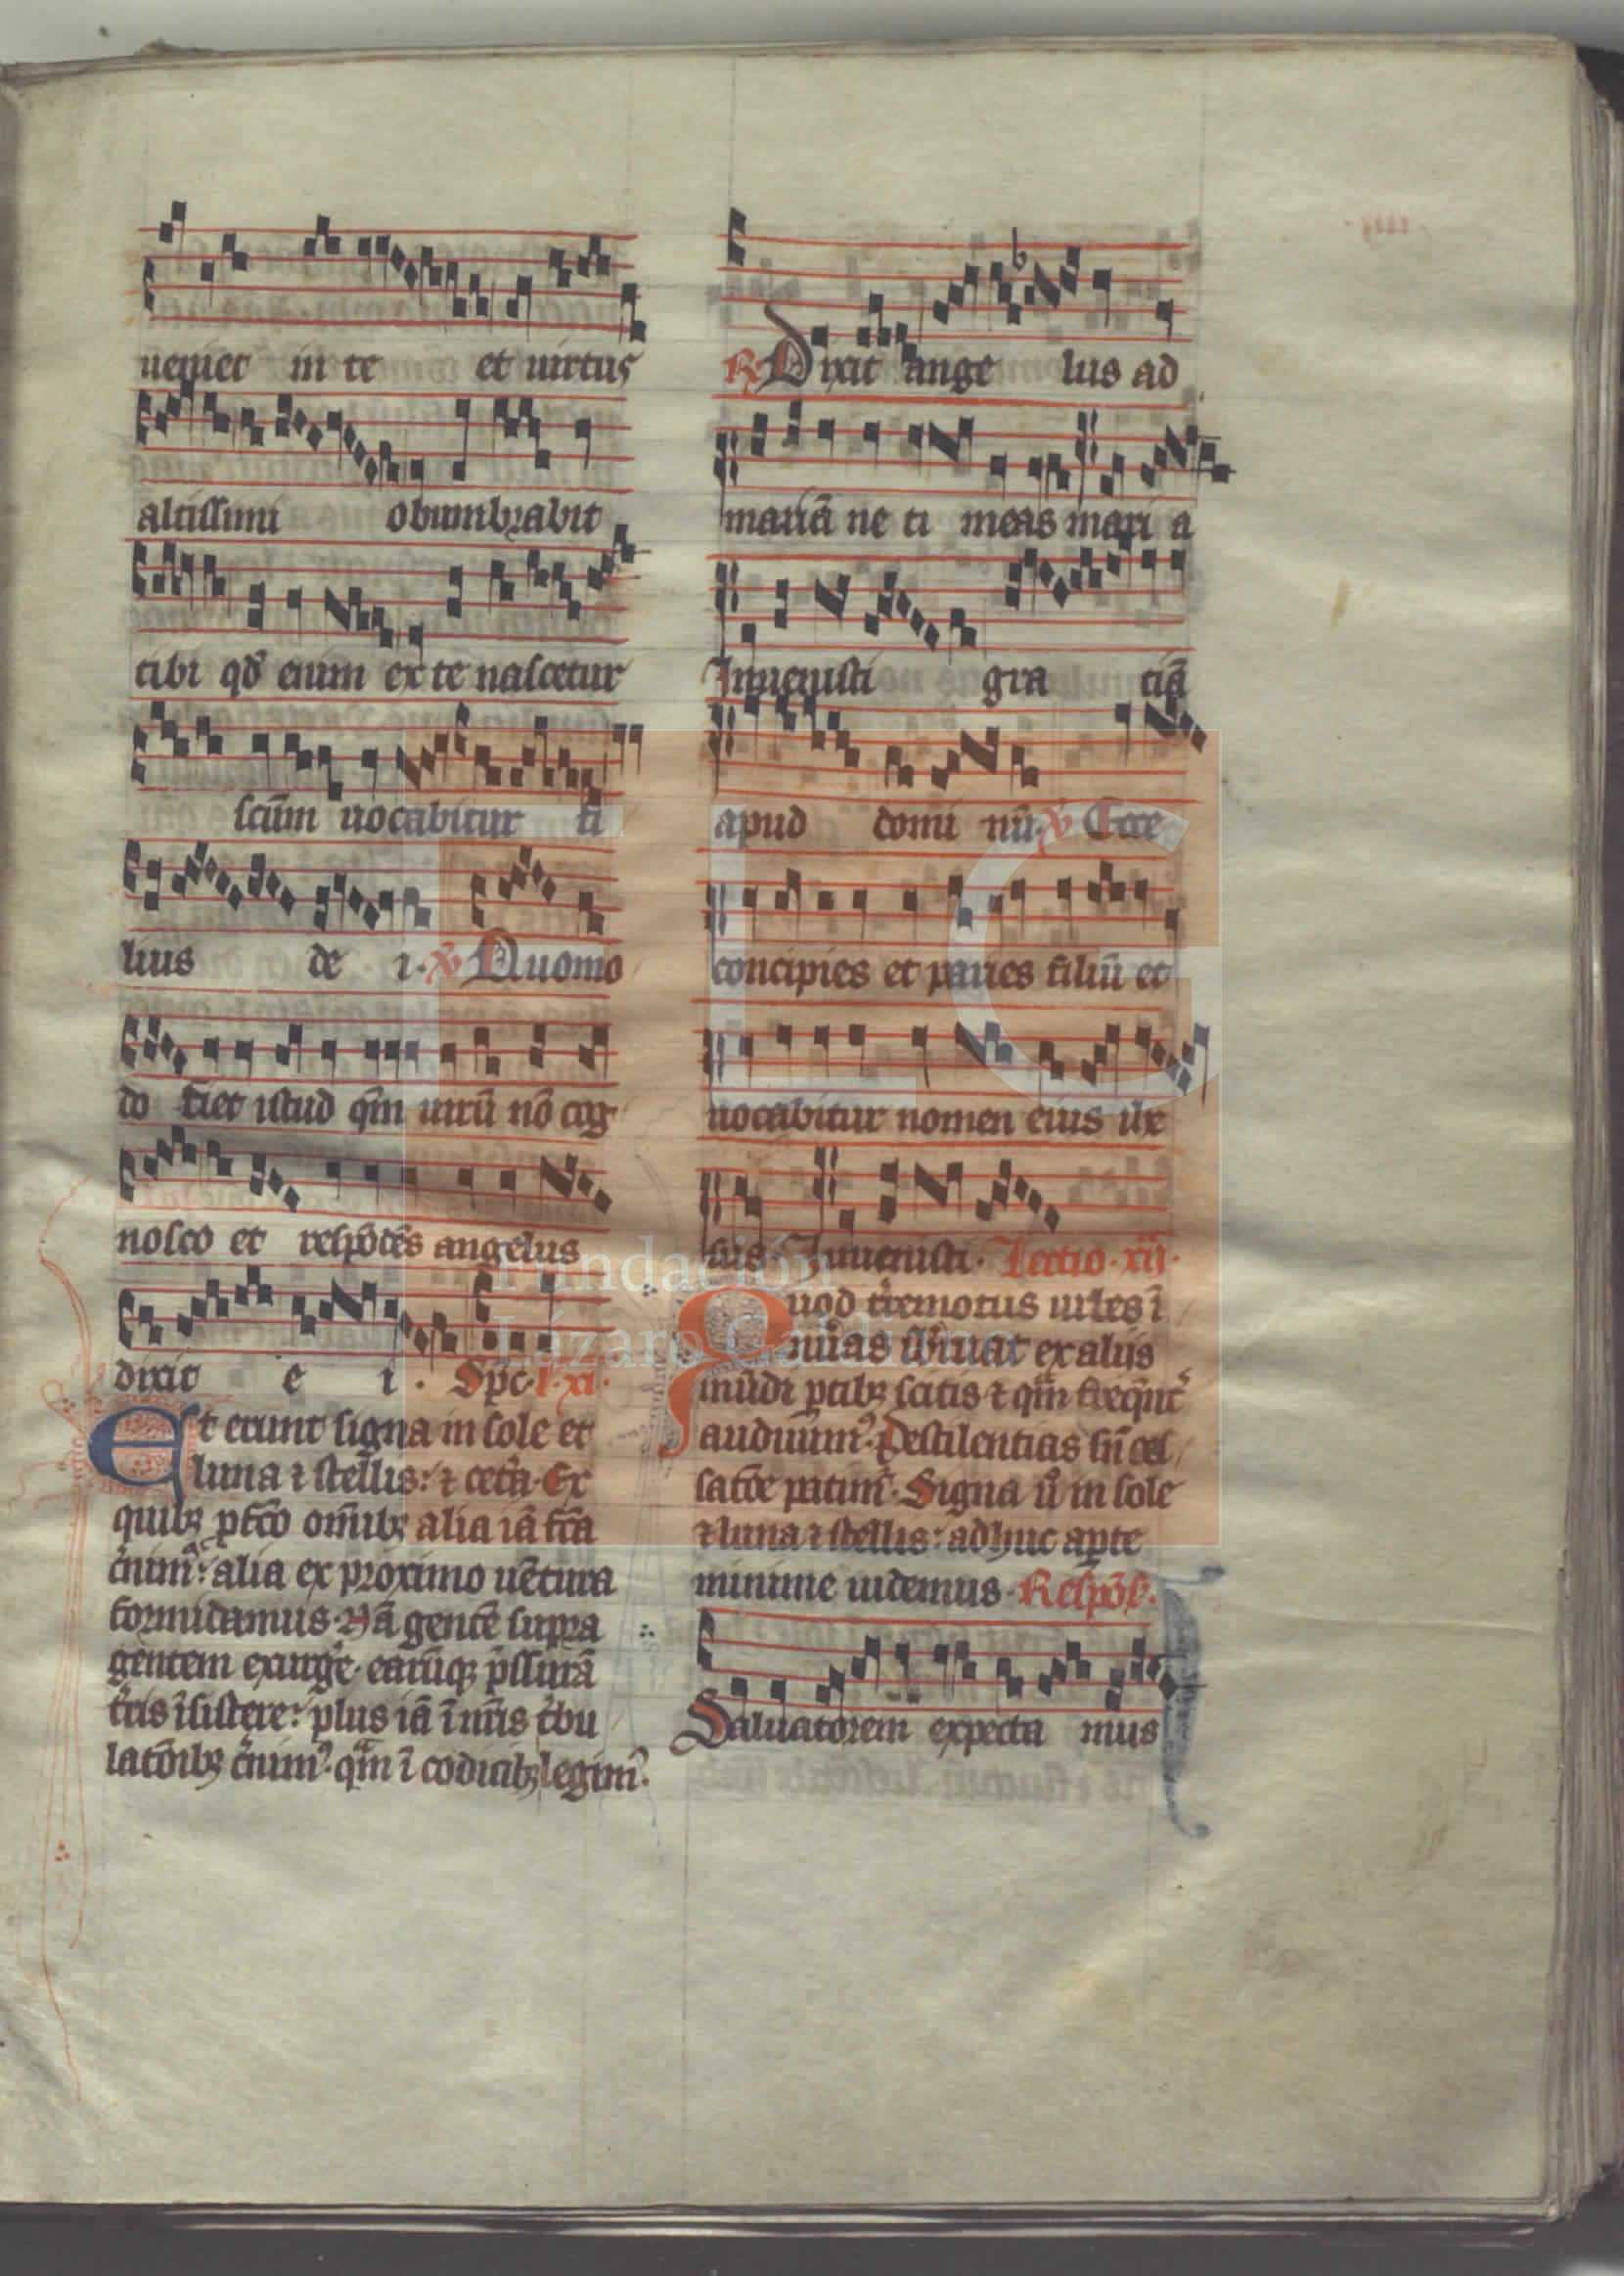 ueniet in te et uirtus
altissimi obumbrabit
tibi qd̄ enim ex te nascetur
scūm uocabitur fi
lius de i. ℣ Quomo
do fiet istud qm̄ uirū nō cog
nosco et respōdēs angelus
dixit e i. Sp̄c. l. xi.
Et erunt signa in sole et
luna ⁊ stellis: ⁊ cet̄a. Ex
quibꝫ ꝓfc̄o om̄ibꝫ alia iā fc̄a
c̄nimꝰ: alia ex proximo uētura
formidamus. Nā gentē supra
gentem exurge᷑. earūqꝫ p̄ssurā
t̄ris īsistere: plus iā ī nr̄is t̓bu
latōibꝫ c̄nimꝰ. qm̄ ī codicibꝫ legimꝰ.
℟ Dixit ange lus ad
mariā ne ti meas mari a
Inuenisti gra tiā
apud domi nū. ℣ Ecce
concipies et paries filiū et
uocabitur nomen eius ihe
sus. Inuenisti. Lectio. xij.
Quod t̄remotus urbes ī
nūas sb̓ruat ex aliis
mūdi ꝑtibꝫ scitis ⁊ qm̄ freq̄nt᷑
audiuimꝰ. Pestilentias sn̄ ces
satōe patimꝰ. Signa u̓ in sole
⁊ luna ⁊ stellis: adhuc aꝑte
minime uidemus. Respōs.
Saluatorem expecta mus
Fundación
Lázaro Galdiano
FLG